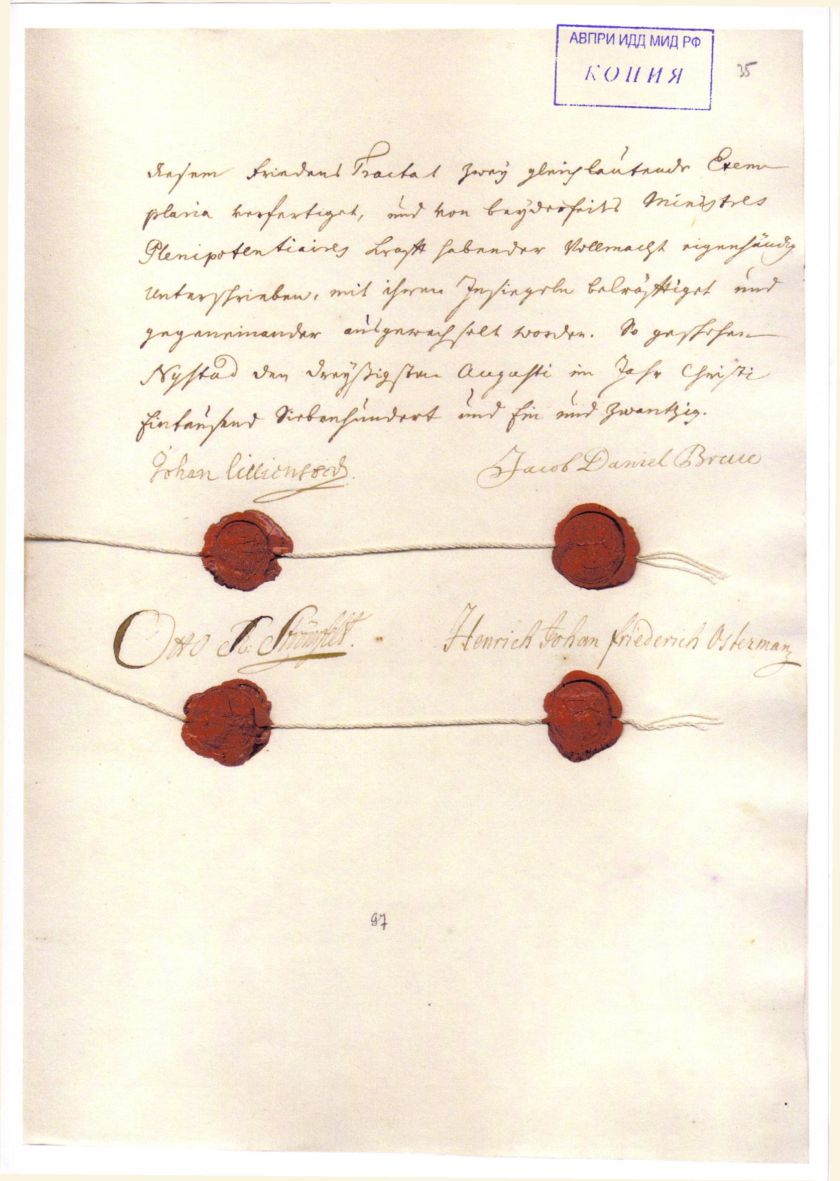 АВПРИ ИДД МИД РФ
КОПИЯ
35
diesem Friedens Tractat zwey gleichlautende Exem
plaria verfertiget, und von beyderseits Ministres
Plenipotentiaires krafft habender Vollmacht eigenhändig
unterschrieben, mit ihren Insiegeln bekräfftiget und
gegeneinander ausgewechselt worden. So geschehen
Nystad den dreyßigsten Augusti im Jahr Christi
Eintausend Siebenhundert und Ein und Zwantzig.
Johan Lillienstedt
Jacob Daniel Bruce
Otto R. Strömfelt.
Henrich Johan Friederich Osterman
97